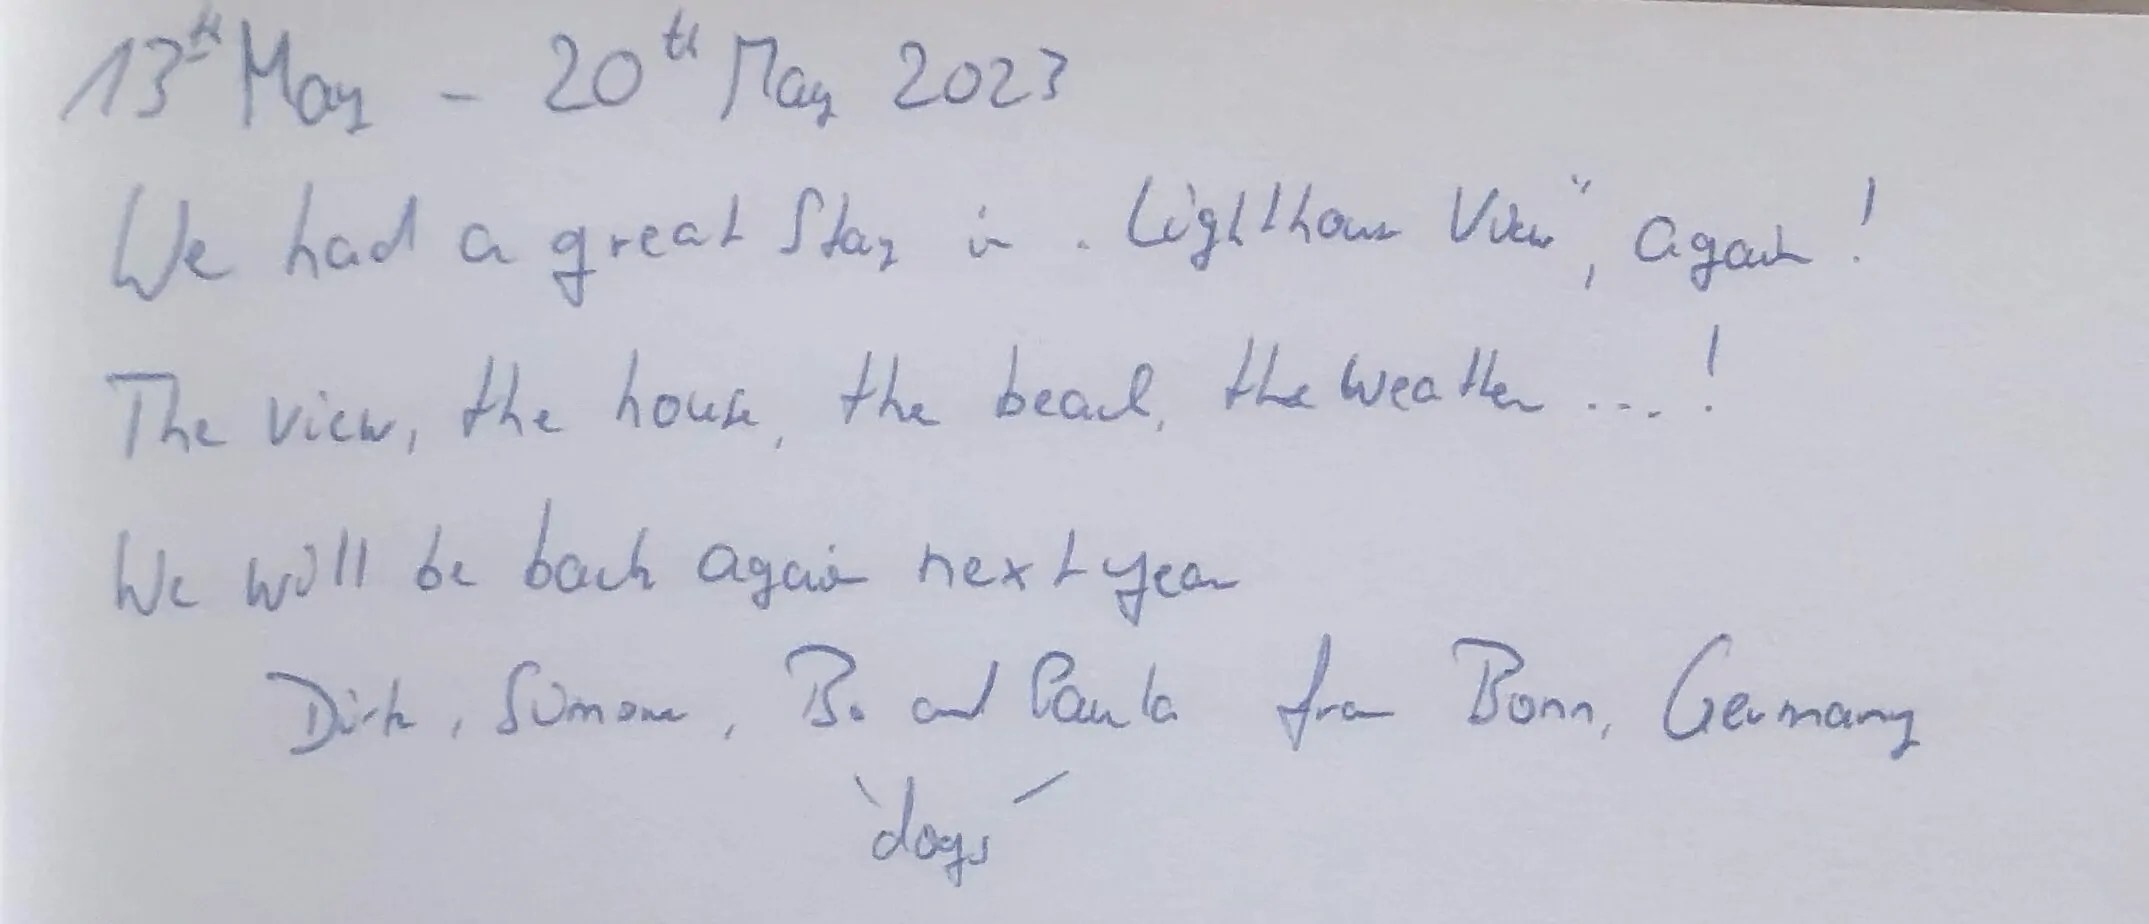 13th May - 20th May 2023
We had a great Stay in "Lighthouse View", again!
The view, the house, the beach, the weather ...!
We will be back again next year
Dirk, Simone, Bo and Paula from Bonn, Germany
dogs